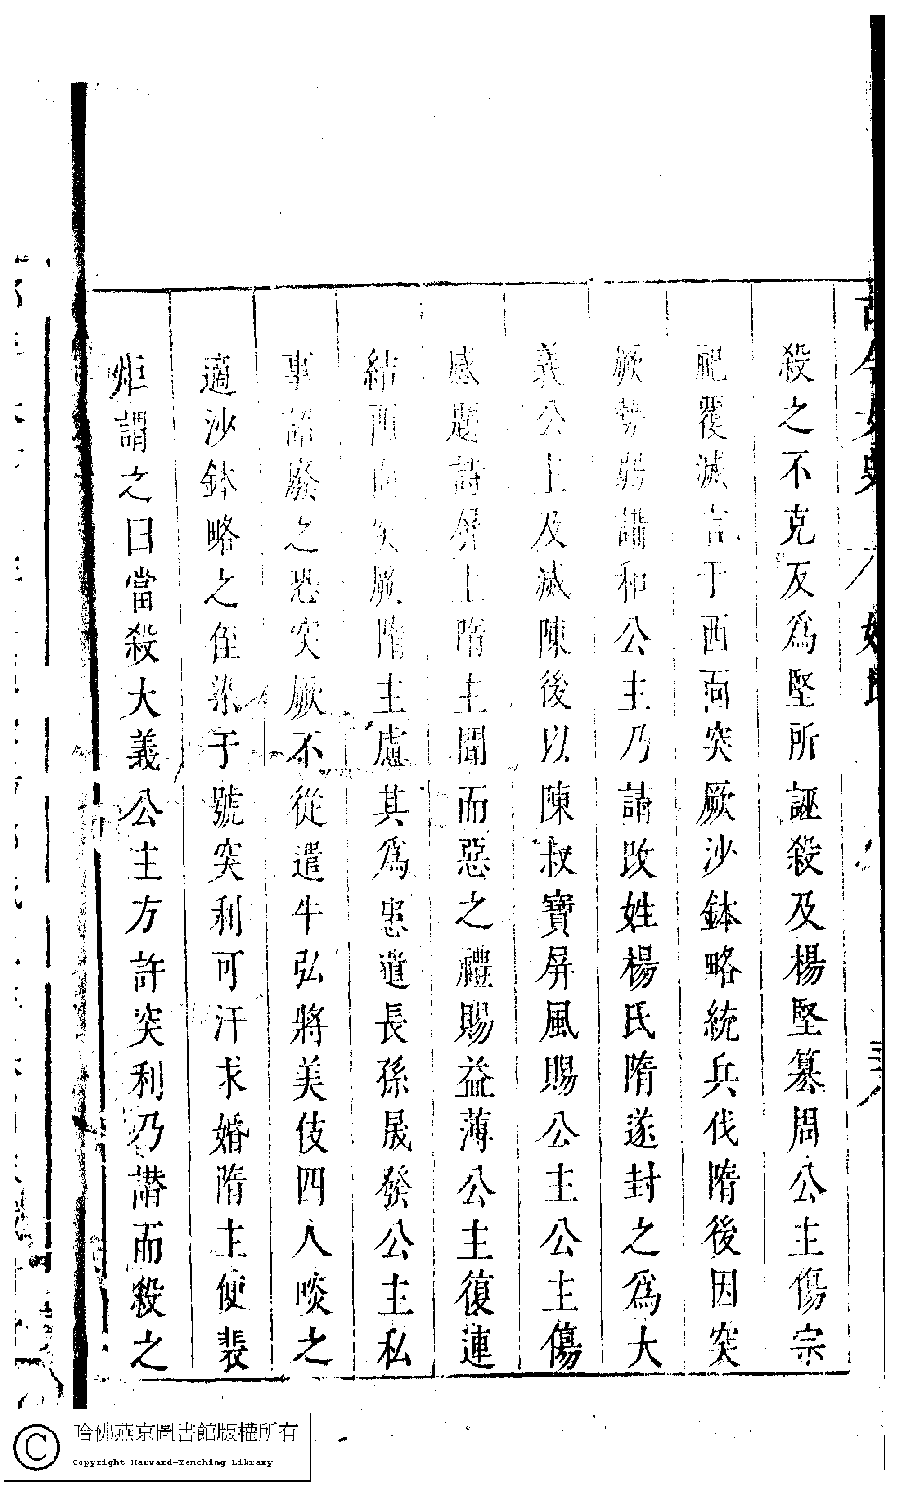 殺之不克反爲堅所誣殺及楊堅篡周公主傷宗
祀覆滅言于西面突厥沙鉢略統兵伐隋後因突
厥勢弱講和公主乃請改姓楊氏隋遂封之爲大
義公主及滅陳後以陳叔寶屏風賜公主公主傷
感題詩屏上隋主聞而惡之禮賜益薄公主復連
結西面突厥隋主慮其爲患遣長孫晟發公主私
事詔廢之恐突厥不從遣牛弘將美伎四人啖之
適沙鉢略之侄染于號突利可汗求婚隋主使裴
炬謂之曰當殺大義公主方許突利乃譖而殺之
古今女史
哈佛燕京圖書館版權所有
Copyright Harvard-Yenching Library